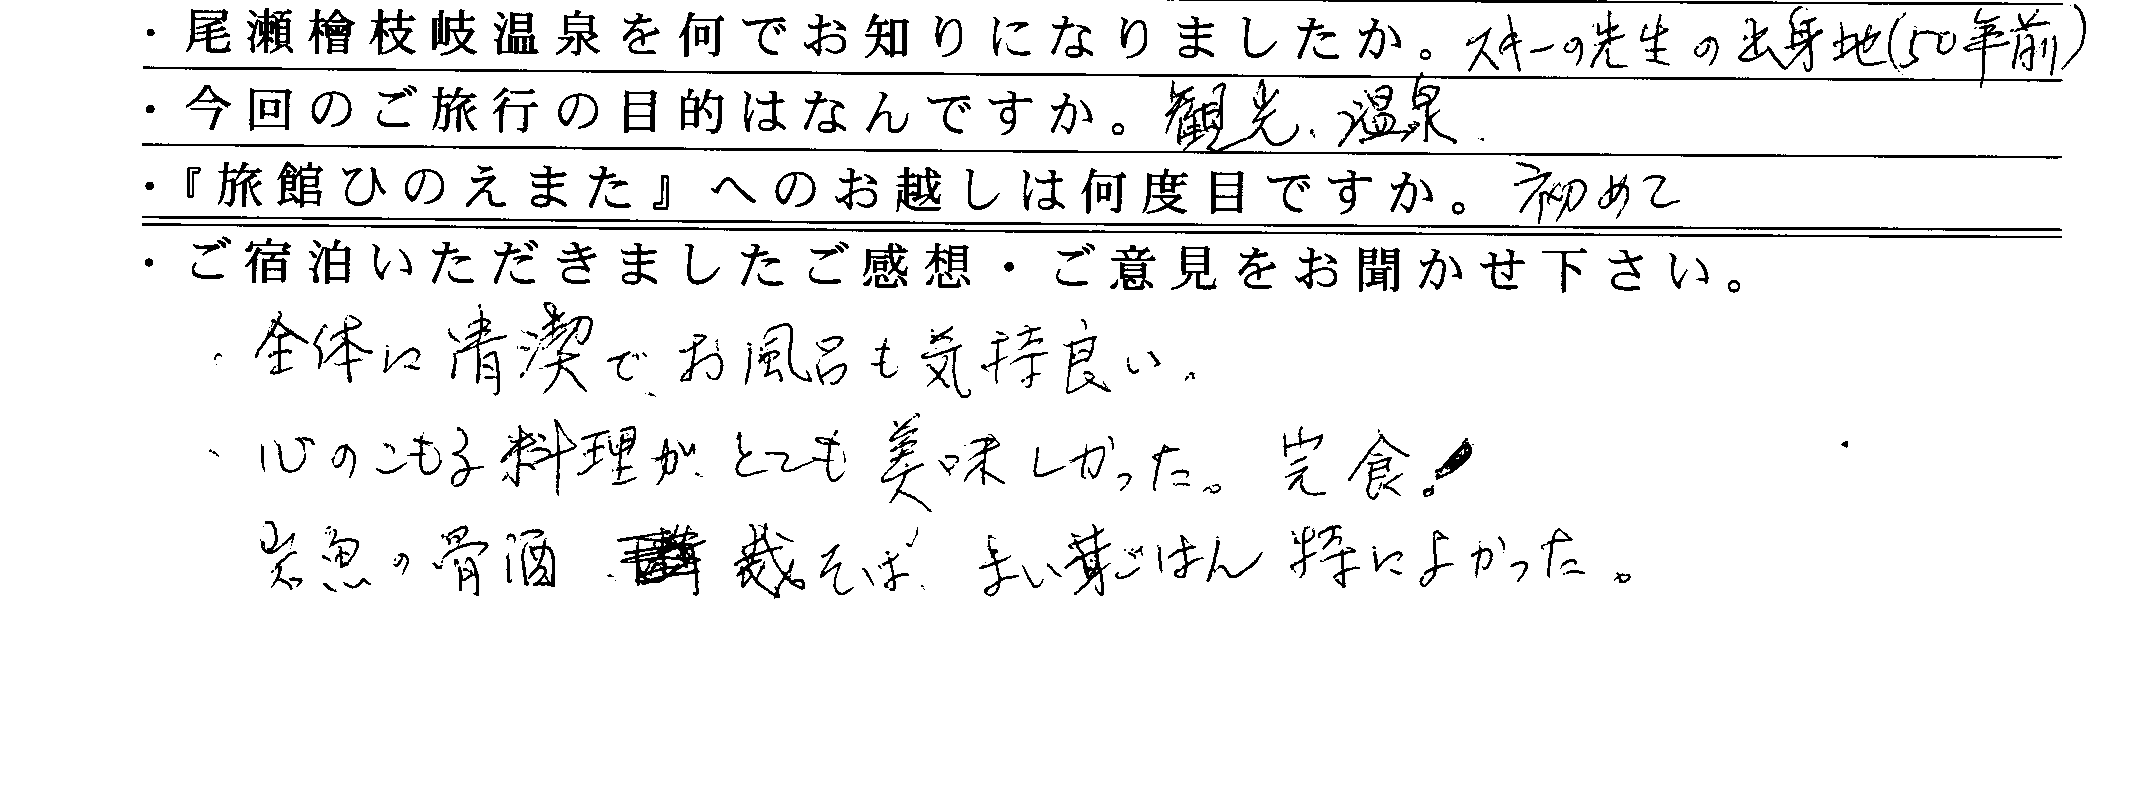 ・尾瀬檜枝岐温泉を何でお知りになりましたか。スキーの先生の出身地(50年前)
・今回のご旅行の目的はなんですか。観光、温泉
・『旅館ひのえまた』へのお越しは何度目ですか。初めて
・ご宿泊いただきましたご感想・ご意見をお聞かせ下さい。
・全体に清潔で、お風呂も気持良い。
・心のこもる料理が、とても美味しかった。完食!
岩魚の骨酒、裁そば、まい茸ごはん 特によかった。